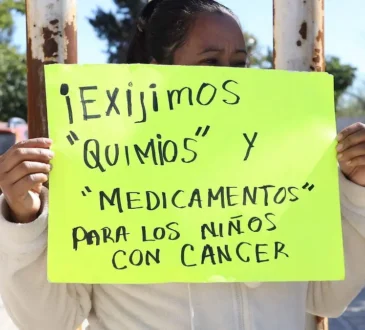 ¡EXijiMOS
"QUIMIOS" Y
"MEDICAMENTOS"
PARA LOS NIÑOS
CON CANCER